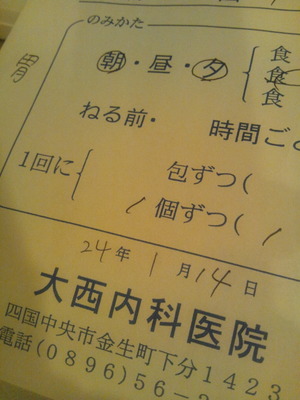 のみかた
胃
朝・昼・夕 食 食 食
ねる前・ 時間ご
1回に 包ずつ(
1 個ずつ( 1
24年 1月14日
大西内科医院
四国中央市金生町下分1423
電話(0896)56-